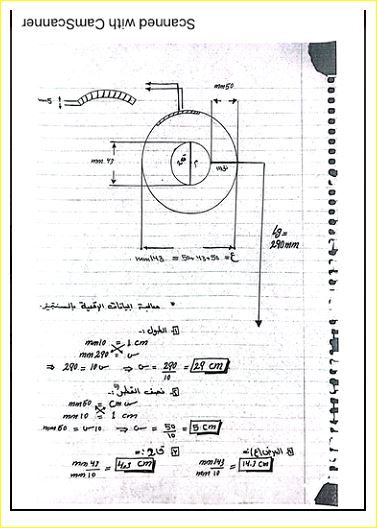 Scanned with CamScanner
mm5
mm50
mm 43
ق2
م
نق
lg =
290 mm
mm143 = 50+43+50 = ع
* معالجة البيانات الرقمية بالسنتيمتر
1 الطول :-
mm10 = 1 cm
mm 290 = س
⇒ 290 = 10 س ⇒ س = 290/10 = 29 cm
2 نصف القطر :-
mm50 = cm س
mm 10 = 1 cm
mm 50 = س10 ⇒ س = 50/10 = 5 cm
العرض (ع) :-
mm143 / mm 10 = 14.3 cm
ق2 :-
mm 43 / mm 10 = 4.3 cm